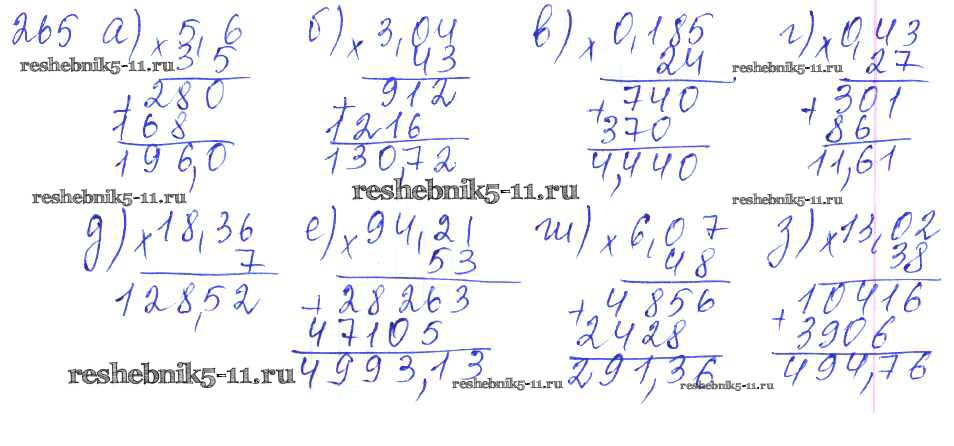 265 а) × 5,6 б) × 3,04 в) × 0,185 г) × 0,43
35 43 24 27
reshebnik5-11.ru reshebnik5-11.ru
+ 280 + 912 + 740 + 301
168 1216 370 86
196,0 130,72 4,440 11,61
reshebnik5-11.ru reshebnik5-11.ru reshebnik5-11.ru
д) × 18,36 е) × 94,21 ж) × 6,07 з) × 13,02
7 53 48 38
128,52 + 28263 + 4856 + 10416
47105 2428 3906
4993,13 291,36 494,76
reshebnik5-11.ru reshebnik5-11.ru reshebnik5-11.ru